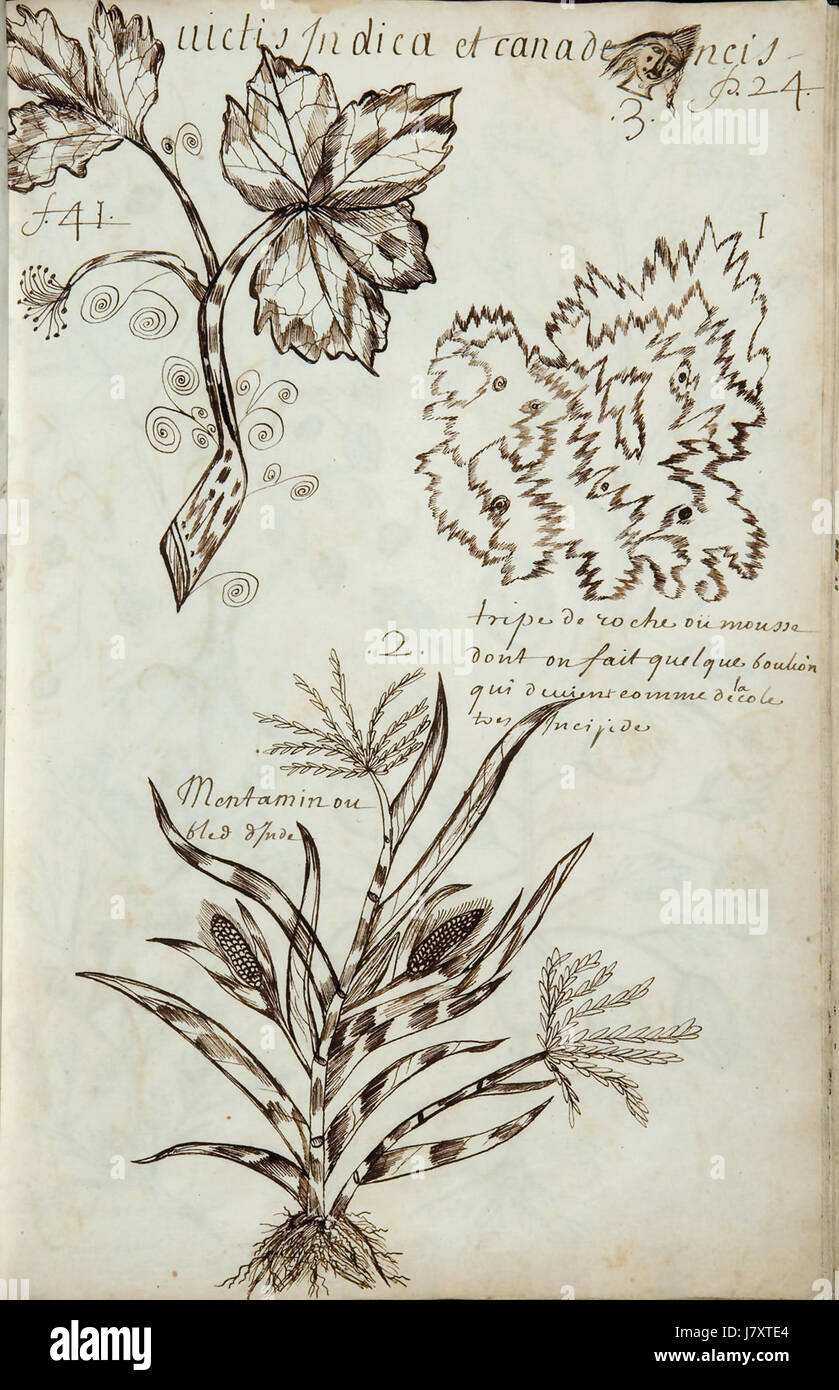 uictis Indica et canade ncis
.3.
p. 24.
f. 41.
1
tripe de roche ou mousse
dont on fait quelque boulion
qui deuient comme de la cole
tres Incipide
.2.
Mentamin ou
bled d'Inde
alamy stock photo
alamy
Image ID: J7XTE4
www.alamy.com